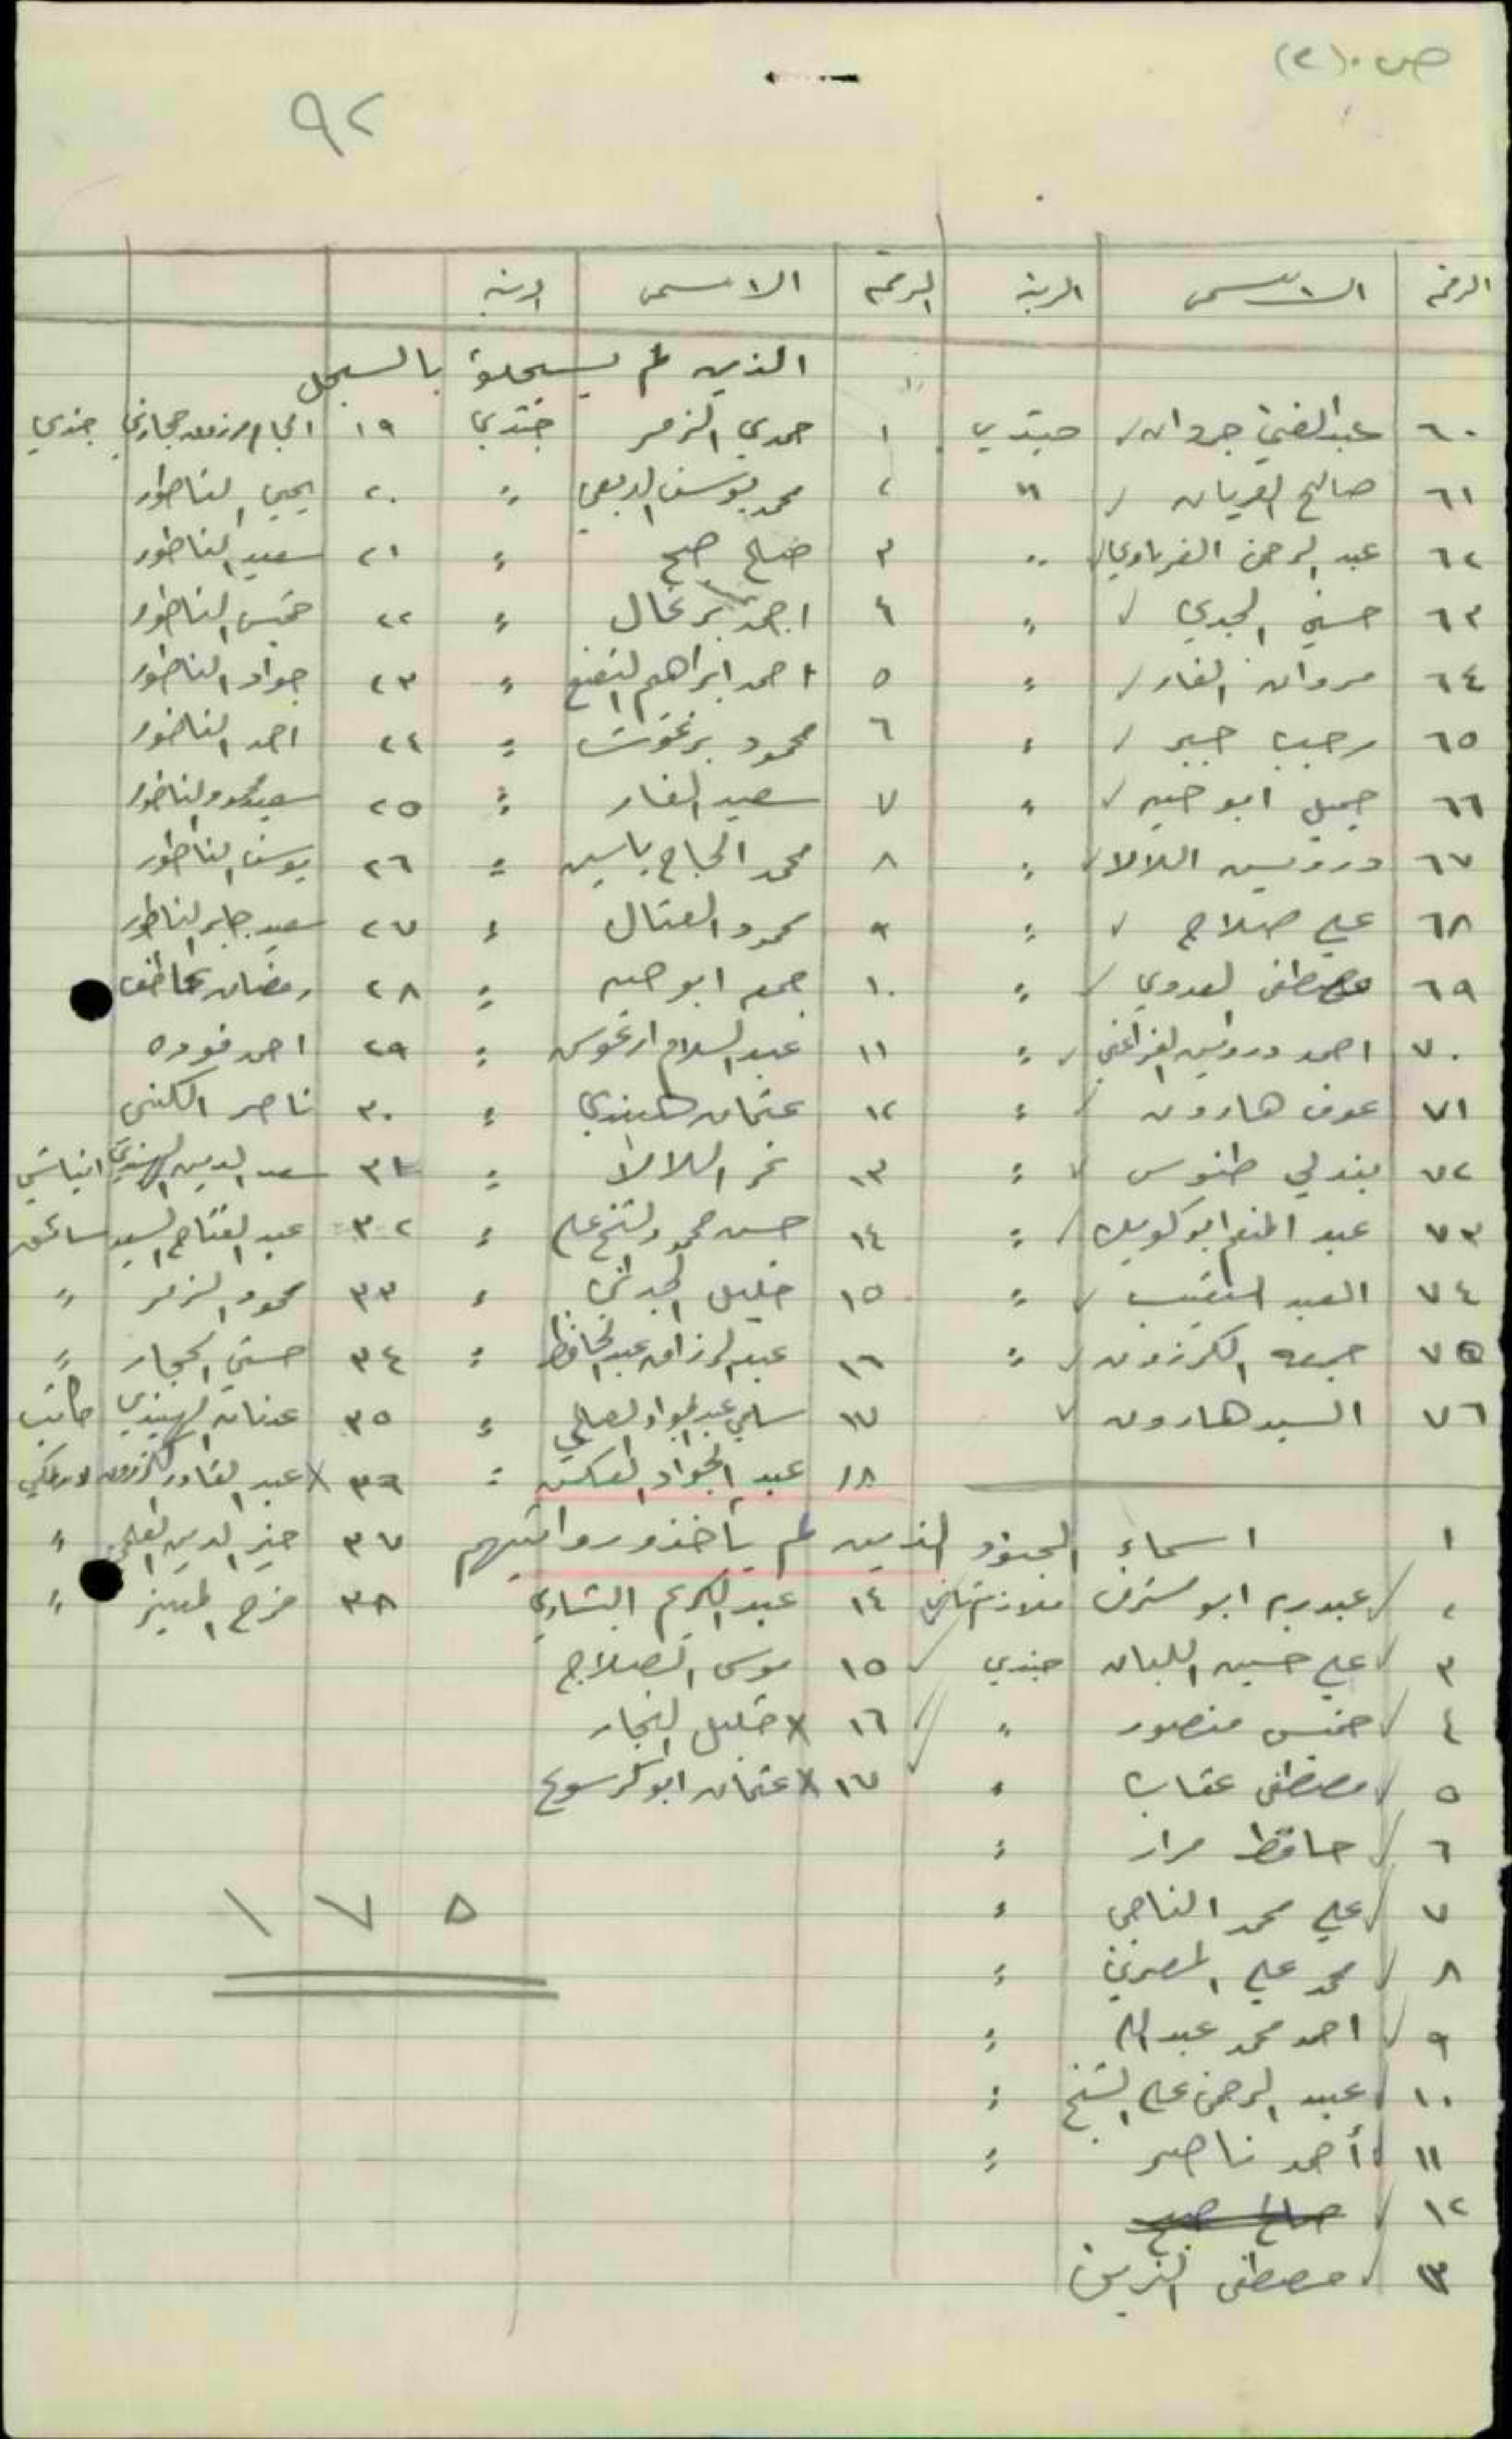 ص. (٢)
٩٢
الرقم الاسم الرتبة الرقم الاسم الرتبة
الذين لم يسجلوا بالسجل
٦٠ عبد الغني جروان / جندي ١ حمدي الزمر جندي ١٩ حجازي جندي
٦١ صالح العريان / " ٢ محمد يوسف الربعي " ٢٠ يحيى الناطور
٦٢ عبد الرحمن / " ٣ صالح صبح " ٢١ سعيد الناطور
٦٣ حسني الجدي / " ٤ احمد برغال " ٢٢ خميس الناطور
٦٤ مروان الفار / " ٥ احمد ابراهيم " ٢٣ جواد الناطور
٦٥ رجب جبر / " ٦ محمود برغوت " ٢٤ احمد الناطور
٦٦ جميل ابو حيه / " ٧ سعيد الفار " ٢٥ سعيد محمود الناطور
٦٧ درويش اللالا / " ٨ محمد الحاج ياسين " ٢٦ يوسف الناطور
٦٨ علي صلاح / " ٩ محمود العتال " ٢٧ سعيد جابر الناطور
٦٩ مصطفى العدوي / " ١٠ جمعه ابو حيه " ٢٨ رمضان
٧٠ احمد درويش / " ١١ عبد السلام " ٢٩ احمد فوده
٧١ عوف هارون / " ١٢ عثمان الهنيدي " ٣٠ ناصر
٧٢ بندلي طنوس / " ١٣ نمر اللالا " ٣١ سعد الدين الهنيدي
٧٣ عبد المنعم ابو كويك / " ١٤ حسن محمود الشيخ علي " ٣٢ عبد الفتاح السيد سائق
٧٤ العبد النقيب / " ١٥ خليل " ٣٣ محمود الزمر "
٧٥ جمعه الكرزون / " ١٦ عبد الرزاق عبد الحافظ " ٣٤ حسني الحجار "
٧٦ السيد هارون / ١٧ سامي عبد الجواد " ٣٥ عدنان الهنيدي كاتب
١٨ عبد الجواد العكش " ٣٦ x عبد القادر الكرزون لاسلكي
١ اسماء الجنود الذين لم يأخذو رواتبهم ٣٧ خير الدين العلمي "
٢ / عبد ربه ابو شرف ملازم ثاني ١٤ عبد الكريم الشاويش ٣٨ فرج "
٣ / علي حسين اللبان جندي / ١٥ موسى الصلاح
٤ / خميس منصور " // ١٦ x خليل النجار
٥ / مصطفى عقاب " / ١٧ x عثمان ابو كرسوع
٦ / حافظ مراد "
٧ / علي محمد الناجي "
٨ / محمد علي المصري "
٩ / احمد محمد عبد الله "
١٠ / عبد الرحمن علي الشيخ "
١١ / أحمد ناصر "
١٢ / صالح صبح
١٣ / مصطفى الزين
١٧٥